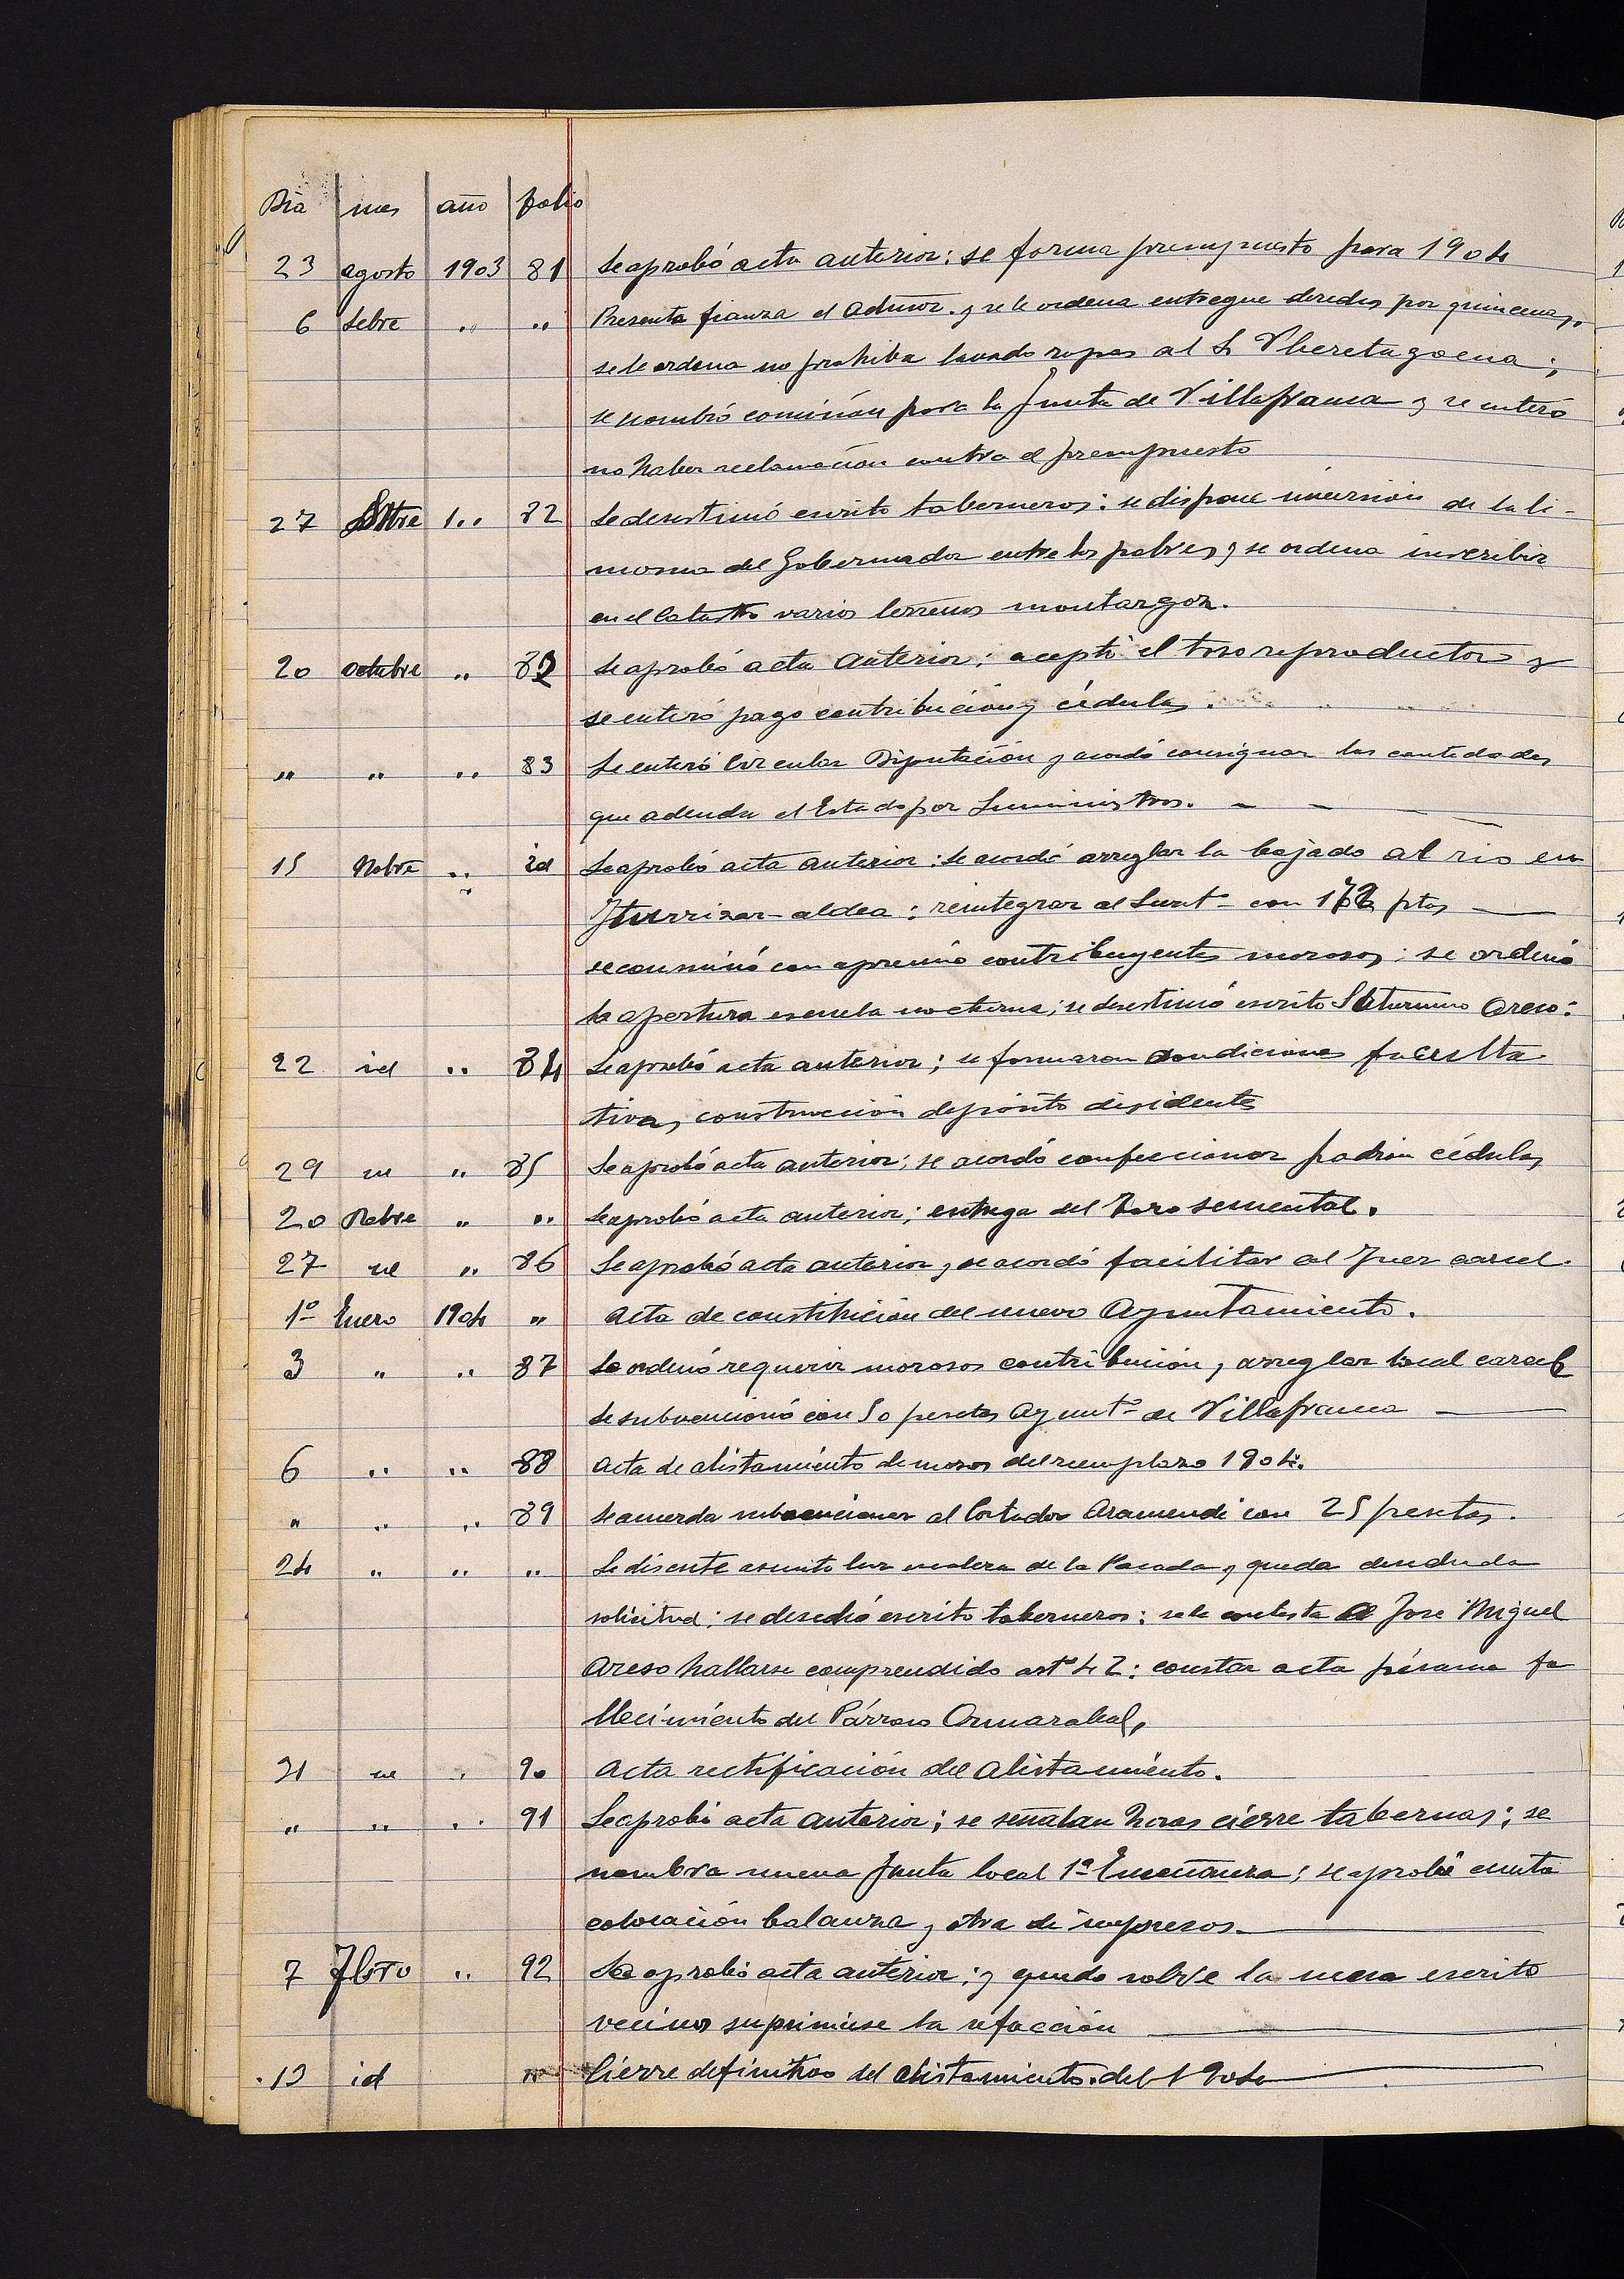 Dia mes año folio
23 agosto 1903 81 Se aprobó acta anterior; se forma presupuesto para 1904
6 Sebre " " Presenta fianza el Admor. y se le ordena entregue derechos por quincenas,
se le ordena no prohiba lavado ropas al S.
se nombró comisión para la Junta de Villafranca y se enteró
no haber reclamación contra el presupuesto
27 " 82 Se desestimó escrito taberneros: se dispone inversión de la li-
mosna del Gobernador entre los pobres y se ordena inscribir
en el Catastro varios terrenos
20 octubre " 82 Se aprobó acta anterior; aceptó el toro reproductor y
se enteró pago contribución y cédulas.
" " " 83 Se enteró Circular Diputación y acordó consignar las cantidades
que adeuda el Estado por Suministros.
15 Nobre " id Se aprobó acta anterior: se acordó arreglar la bajada al rio en
Iturrizar-aldea: reintegrar al con ptas
se conminó con apremio contribuyentes morosos: se ordenó
la apertura escuela nocturna; se desestimó escrito Saturnino Areso:
22 id " 84 Se aprobó acta anterior; se formaron condiciones faculta
tivas, construcción depósito
29 id " 85 Se aprobó acta anterior; se acordó confeccionar padrón cédulas
20 " " Se aprobó acta anterior; entrega del toro semental.
27 id " 86 Se aprobó acta anterior y se acordó facilitar al Juez carcel.
1º Enero 1904 " Acta de constitución del nuevo Ayuntamiento.
3 " " 87 Se ordenó requerir morosos contribución, arreglar local carcel
Se subvencionó con 50 pesetas Ayuntº de Villafranca
6 " " 88 Acta de alistamiento de mozos del reemplazo 1904.
" " " 89 Se acuerda subvencionar al Cortador Aramendi con 25 pesetas.
24 " " " Se discute asunto luz escalera de la Posada y queda desechada
solicitud: se desechó escrito taberneros: se le contesta a Jose Miguel
Areso hallarse comprendido artº 42: constar acta pésame fa
llecimiento del Párroco
31 id " 90 Acta rectificación del alistamiento.
" " " 91 Se aprobó acta anterior; se señalan horas cierre tabernas; se
nombra nueva Junta local 1ª Enseñanza; se aprobó cuenta
colocación balanza y otra de impresos.
7 Fbro " 92 Se aprobó acta anterior; y quedo sobre la mesa escrito
vecinos suprimiese la refacción
13 id " Cierre definitivo del alistamiento del 1904